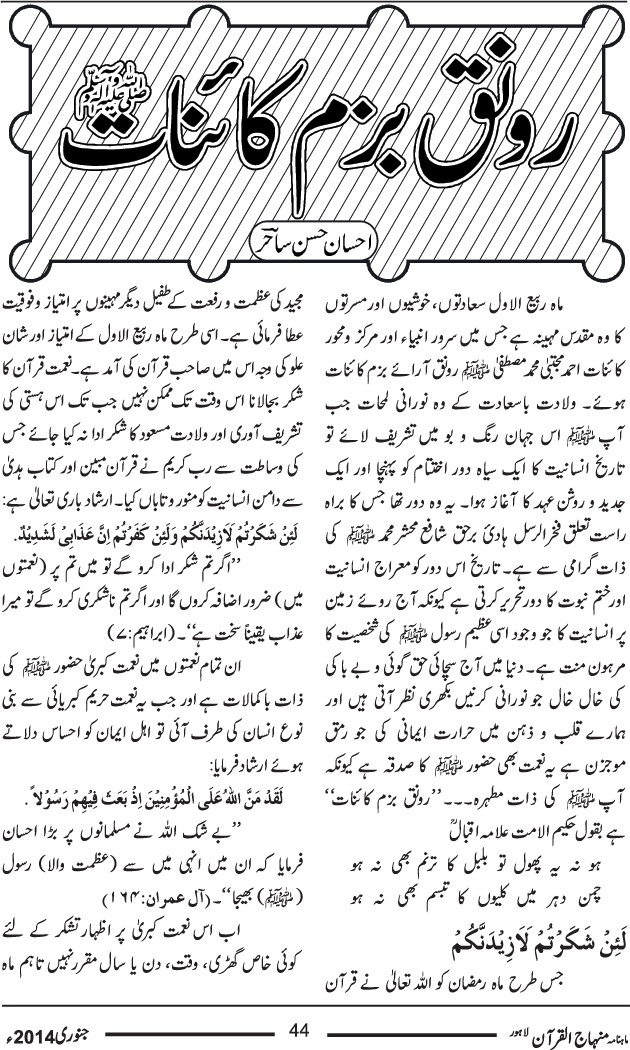 رونق بزم کائنات ﷺ
احسان حسن ساحر
ماہ ربیع الاول سعادتوں، خوشیوں اور مسرتوں
کا وہ مقدس مہینہ ہے جس میں سرور انبیاء اور مرکز ومحور
کائنات احمد مجتبیٰ محمد مصطفیٰ ﷺ رونق آرائے بزم کائنات
ہوئے۔ ولادت باسعادت کے وہ نورانی لمحات جب
آپ ﷺ اس جہان رنگ و بو میں تشریف لائے تو
تاریخ انسانیت کا ایک سیاہ دور اختتام کو پہنچا اور ایک
جدید و روشن عہد کا آغاز ہوا۔ یہ وہ دور تھا جس کا براہ
راست تعلق فخرالرسل ہادیٔ برحق شافع محشر محمد ﷺ کی
ذات گرامی سے ہے۔ تاریخ اس دور کو معراج انسانیت
اور ختم نبوت کا دور تحریر کرتی ہے کیونکہ آج روئے زمین
پر انسانیت کا جو وجود اسی عظیم رسول ﷺ کی شخصیت کا
مرہون منت ہے۔ دنیا میں آج سچائی حق گوئی و بے باکی
کی خال خال جو نورانی کرنیں بکھری نظر آتی ہیں اور
ہمارے قلب و ذہن میں حرارت ایمانی کی جو رمق
موجزن ہے یہ نعمت بھی حضور ﷺ کا صدقہ ہے کیونکہ
آپ ﷺ کی ذات مطہرہ۔۔۔ ’’رونق بزم کائنات‘‘
ہے بقول حکیم الامت علامہ اقبالؒ
ہو نہ یہ پھول تو بلبل کا ترنم بھی نہ ہو
چمن دہر میں کلیوں کا تبسم بھی نہ ہو
لَئِنْ شَکَرْتُمْ لَاَزِیْدَنَّکُمْ
جس طرح ماہ رمضان کو اللہ تعالیٰ نے قرآن
مجید کی عظمت و رفعت کے طفیل دیگر مہینوں پر امتیاز وفوقیت
عطا فرمائی ہے۔ اسی طرح ماہ ربیع الاول کے امتیاز اور شان
علو کی وجہ اس میں صاحب قرآن کی آمد ہے۔ نعمت قرآن کا
شکر بجالانا اس وقت تک ممکن نہیں جب تک اس ہستی کی
تشریف آوری اور ولادت مسعود کا شکر ادا نہ کیا جائے جس
کی وساطت سے رب کریم نے قرآن مبین اور کتاب ہدیٰ
سے دامن انسانیت کو منور و تاباں کیا۔ ارشاد باری تعالیٰ ہے:
لَئِنْ شَکَرْتُمْ لَاَزِیْدَنَّکُمْ وَلَئِنْ کَفَرْتُمْ اِنَّ عَذَابِیْ لَشَدِیْدٌ.
’’اگر تم شکر ادا کرو گے تو میں تم پر (نعمتوں
میں) ضرور اضافہ کروں گا اور اگر تم ناشکری کرو گے تو میرا
عذاب یقیناً سخت ہے‘‘۔ (ابراہیم:۷)
ان تمام نعمتوں میں نعمت کبریٰ حضور ﷺ کی
ذات باکمالات ہے اور جب یہ نعمت حریم کبریائی سے بنی
نوع انسان کی طرف آئی تو اہل ایمان کو احساس دلاتے
ہوئے ارشاد فرمایا:
لَقَدْ مَنَّ اللّٰهُ عَلَی الْمُؤْمِنِیْنَ اِذْ بَعَثَ فِیْهِمْ رَسُوْلاً .
’’بے شک اللہ نے مسلمانوں پر بڑا احسان
فرمایا کہ ان میں انہی میں سے (عظمت والا) رسول
(ﷺ) بھیجا‘‘۔ (آل عمران:۱۶۴)
اب اس نعمت کبریٰ پر اظہار تشکر کے لئے
کوئی خاص گھڑی، وقت، دن یا سال مقرر نہیں تاہم ماہ
ماہنامہ منہاج القرآن لاہور 44 جنوری 2014ء